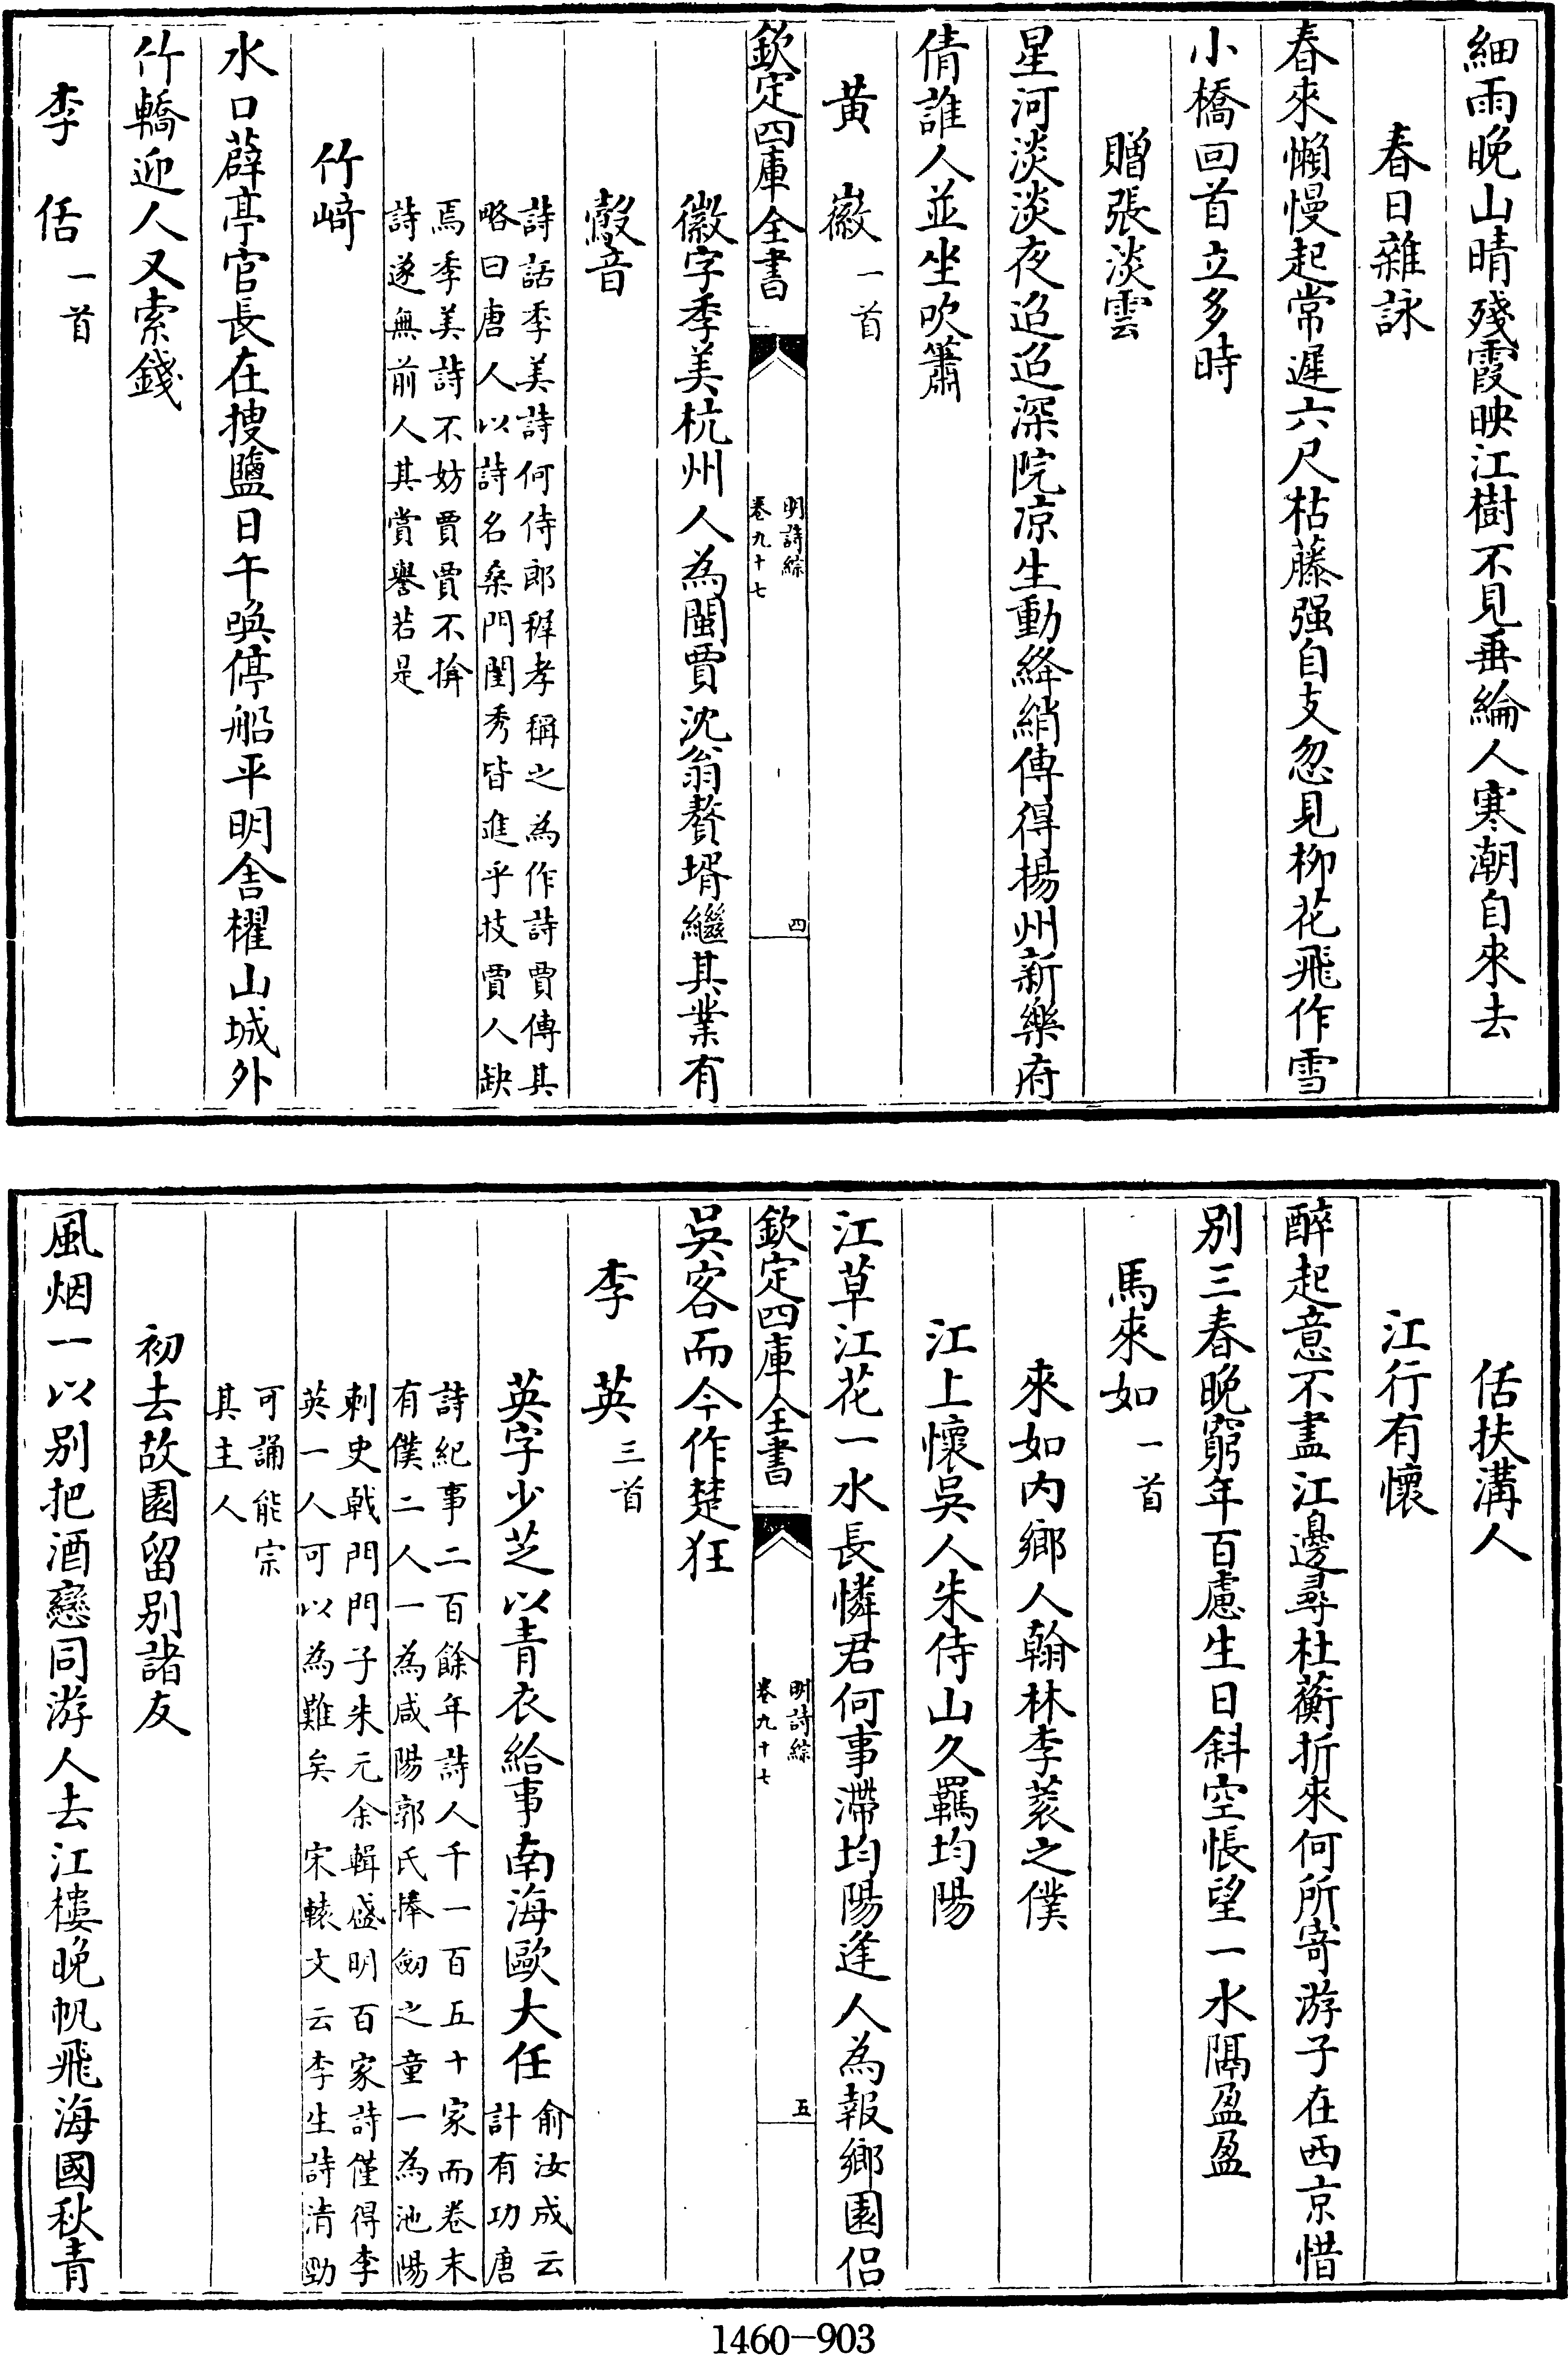 細雨晚山晴殘霞映江樹不見垂綸人寒潮自來去
春日雜詠
春來懶慢起常遲六尺枯藤强自支忽見柳花飛作雪
小橋回首立多時
贈張淡雲
星河淡淡夜迢迢深院凉生動絳綃傳得揚州新樂府
倩誰人並坐吹簫
黄徽一首
欽定四庫全書
明詩綜
卷九十七
四
徽字季美杭州人為閩賈沈翁贅壻繼其業有
鷇音
詩話季美詩何侍郎稺孝稱之為作詩賈傳其
略曰唐人以詩名桑門閨秀皆進乎技賈人缺
焉季美詩不妨賈賈不揜
詩遂無前人其賞譽若是
竹崎
水口薜亭官長在搜鹽日午喚停船平明舍櫂山城外
竹轎迎人又索錢
李佸一首
佸扶溝人
江行有懷
醉起意不盡江邊尋杜蘅折來何所寄游子在西京惜
别三春晚窮年百慮生日斜空悵望一水隔盈盈
馬來如一首
來如内鄉人翰林李蓘之僕
江上懷吳人朱侍山久羈均陽
江草江花一水長憐君何事滯均陽逢人為報鄉園侣
欽定四庫全書
明詩綜
卷九十七
五
吳客而今作楚狂
李英三首
英字少芝以青衣給事南海歐大任
俞汝成云
計有功唐
詩紀事二百餘年詩人千一百五十家而卷末
有僕二人一為咸陽郭氏捧劒之童一為池陽
刺史戟門門子朱元余輯盛明百家詩僅得李
英一人可以為難矣　宋轅文云李生詩清勁
可誦能宗
其主人
初去故園留别諸友
風烟一以别把酒戀同游人去江樓晚帆飛海國秋青
1460—903